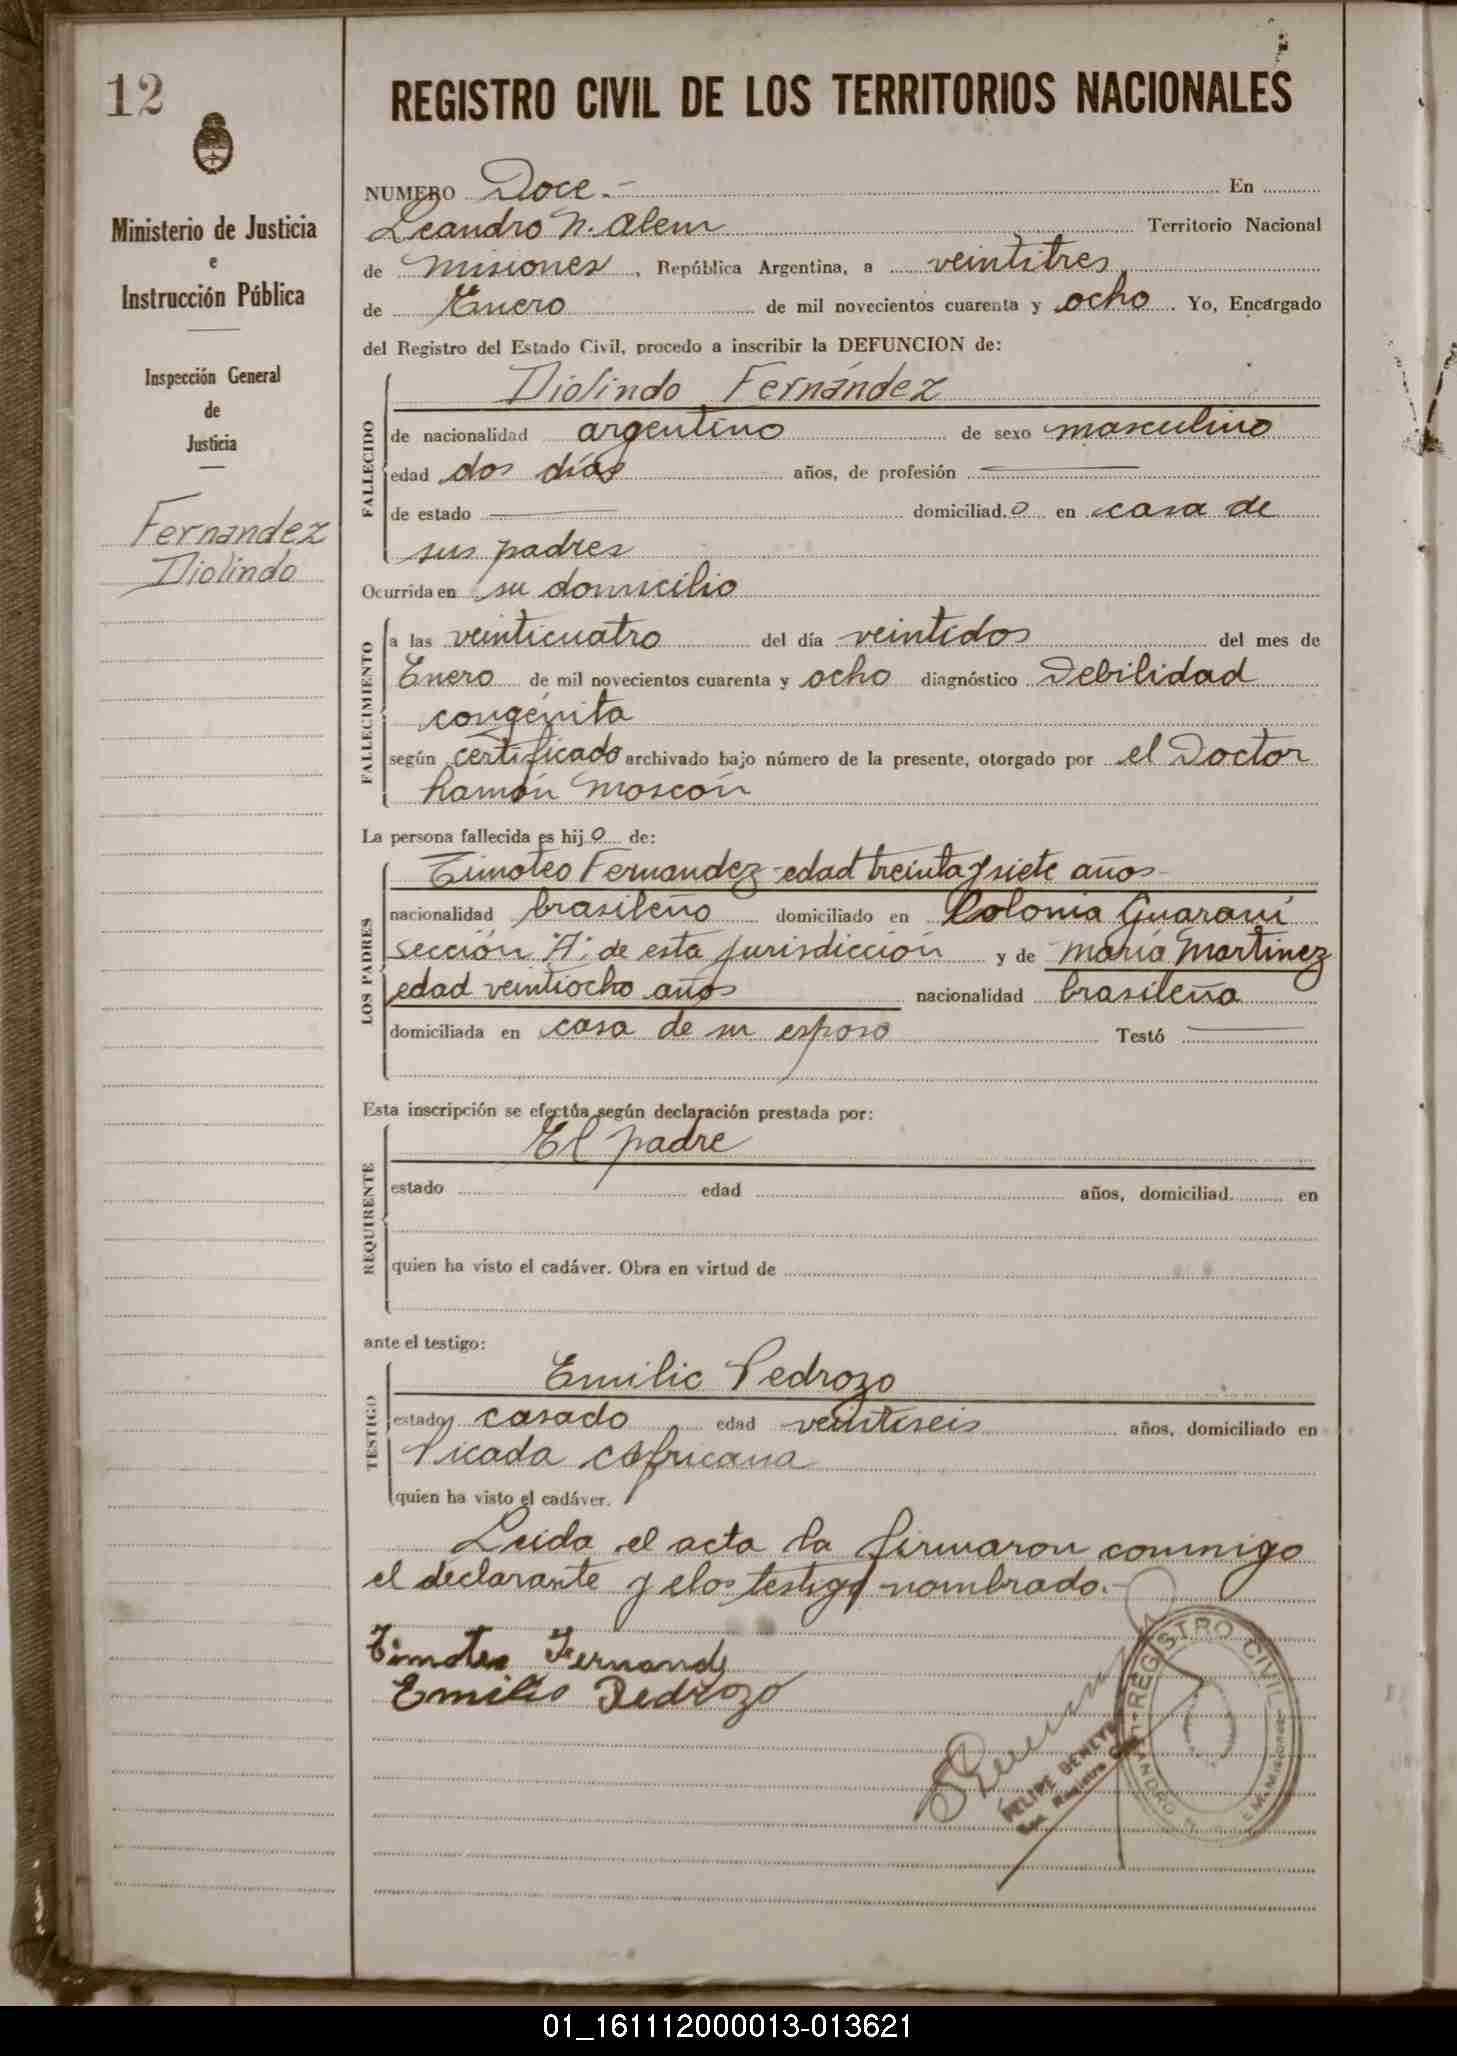 12
Ministerio de Justicia
e
Instrucción Pública
Inspección General
de
Justicia
Fernandez
Diolindo
REGISTRO CIVIL DE LOS TERRITORIOS NACIONALES
NUMERO Doce.- En
Leandro N. Alem Territorio Nacional
de Misiones, República Argentina, a veintitres
de Enero de mil novecientos cuarenta y ocho. Yo, Encargado
del Registro del Estado Civil, procedo a inscribir la DEFUNCION de:
FALLECIDO
Diolindo Fernández
de nacionalidad argentino de sexo masculino
edad dos días años, de profesión
de estado domiciliad.o en casa de
sus padres
Ocurrida en su domicilio
FALLECIMIENTO
a las veinticuatro del día veintidos del mes de
Enero de mil novecientos cuarenta y ocho diagnóstico Debilidad
congénita
según certificado archivado bajo número de la presente, otorgado por el Doctor
Ramón Moscón
La persona fallecida es hij o de:
LOS PADRES
Timoteo Fernandez - edad treinta y siete años -
nacionalidad brasileño domiciliado en Colonia Guaraní
sección "A" de esta jurisdicción y de María Martinez
edad veintiocho años nacionalidad brasileña
domiciliada en casa de su esposo Testó
Esta inscripción se efectúa según declaración prestada por:
REQUIRENTE
El padre
estado edad años, domiciliad. en
quien ha visto el cadáver. Obra en virtud de
ante el testigo:
TESTIGO
Emilio Pedrozo
estado casado edad veintiseis años, domiciliado en
Picada Africana
quien ha visto el cadáver.
Leida el acta la firmaron conmigo
el declarante y el testigo nombrado.-
Timoteo Fernand
Emilio Pedrozo
REGISTRO CIVIL
FELIPE
MISIONES
01_161112000013-013621